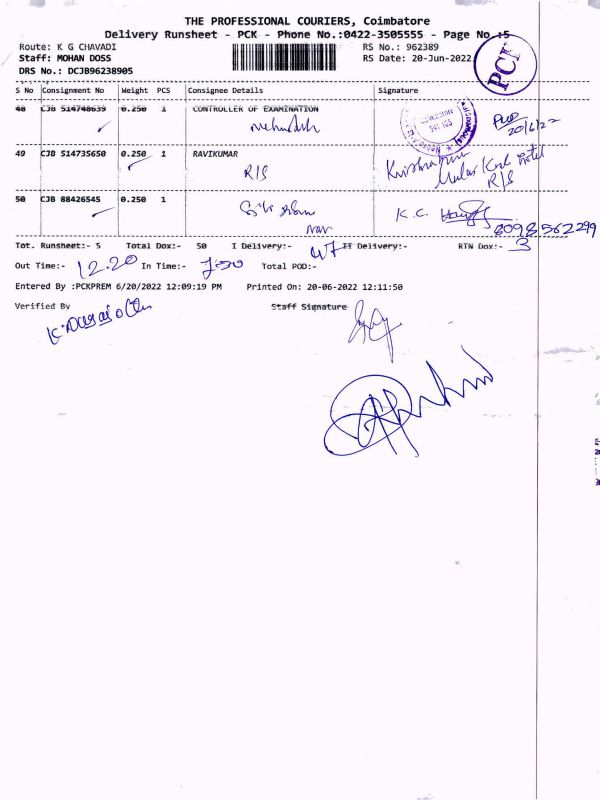 THE PROFESSIONAL COURIERS, Coimbatore
Delivery Runsheet - PCK - Phone No.:0422-3505555 - Page No.:5
Route: K G CHAVADI RS No.: 962389
Staff: MOHAN DOSS RS Date: 20-Jun-2022
DRS No.: DCJB96238905
PCK
S No Consignment No Weight PCS Consignee Details Signature
48 CJB 514748639 0.250 1 CONTROLLER OF EXAMINATION
20/6/22
49 CJB 514735650 0.250 1 RAVIKUMAR
R/S
R/S
50 CJB 88426545 0.250 1
K.C.
8098562299
Tot. Runsheet:- 5 Total Dox:- 50 I Delivery:- 47 II Delivery:- RTN Dox:- 3
Out Time:- 12.20 In Time:- 7:50 Total POD:-
Entered By :PCKPREM 6/20/2022 12:09:19 PM Printed On: 20-06-2022 12:11:50
Verified By Staff Signature